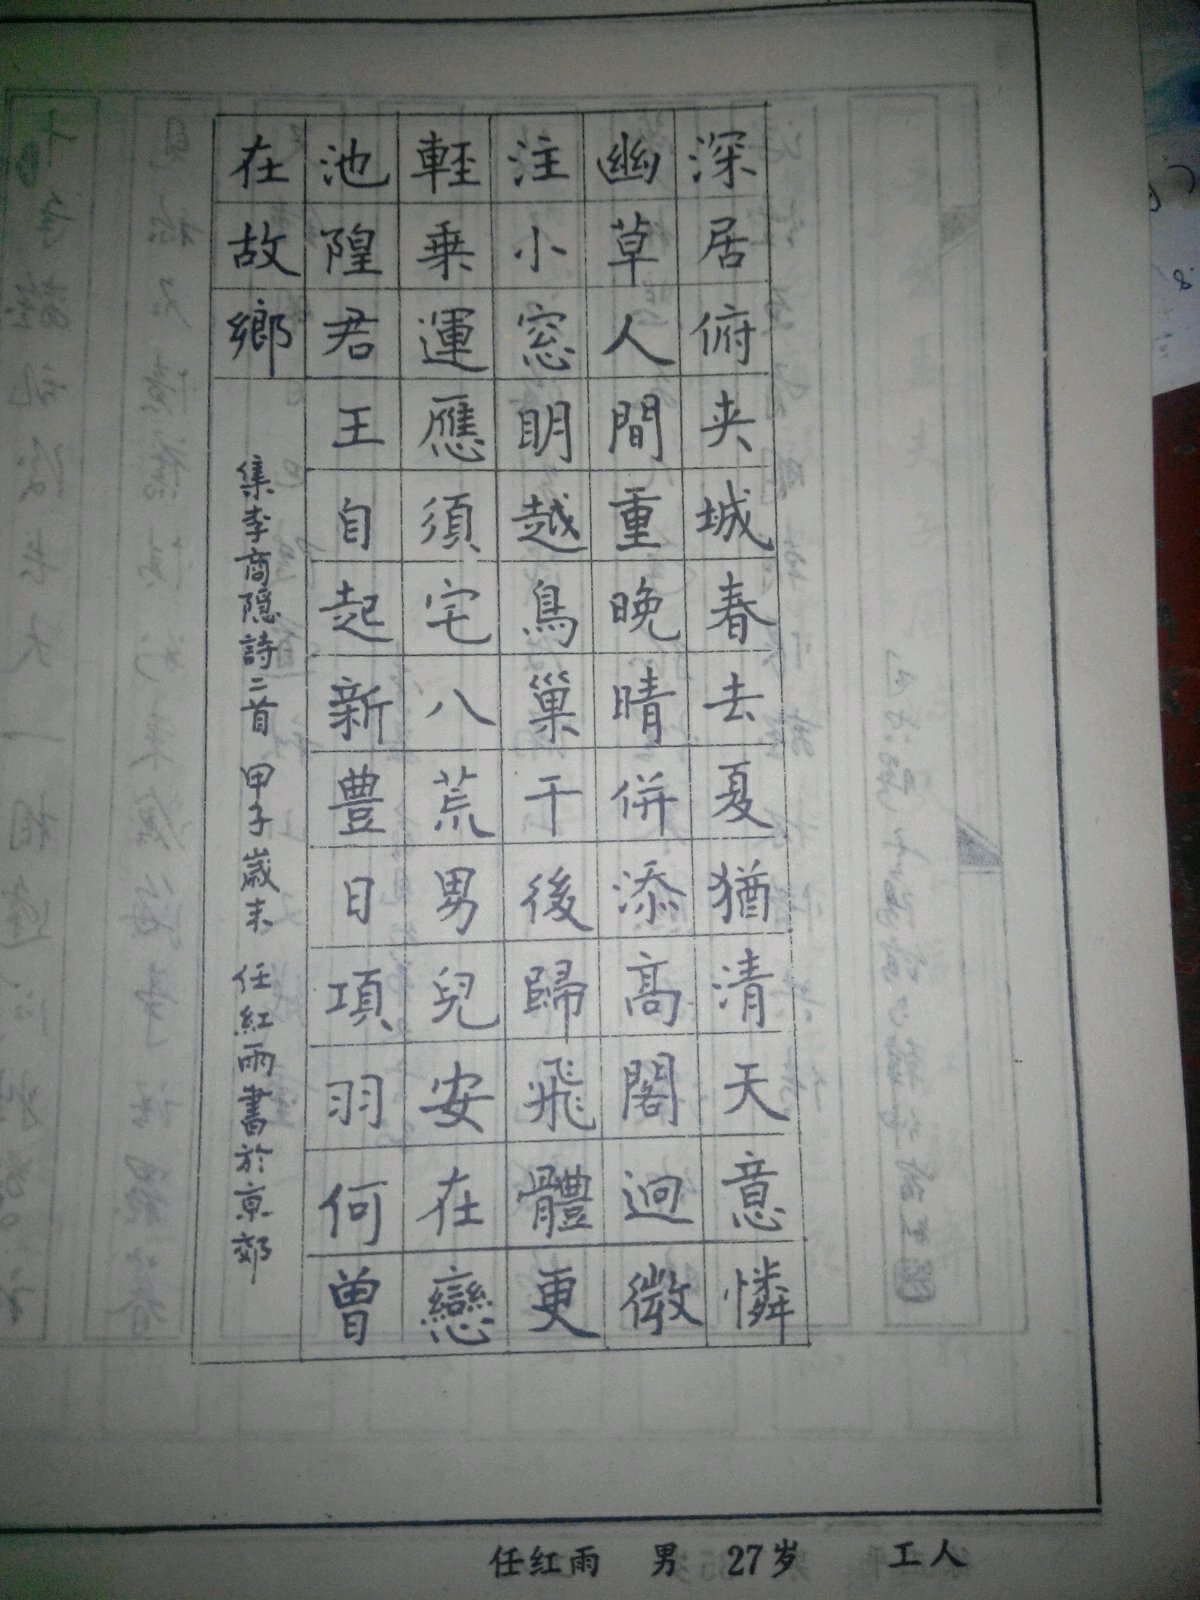 深居俯夹城春去夏猶清天意憐
幽草人間重晚晴併添高閣迥微
注小窓明越鳥巢干後歸飛體更
輕乗運應須宅八荒男兒安在戀
池隍君王自起新豊日項羽何曾
在故鄉
集李商隱詩二首 甲子歲末 任紅雨書於京郊
任红雨 男 27岁 工人